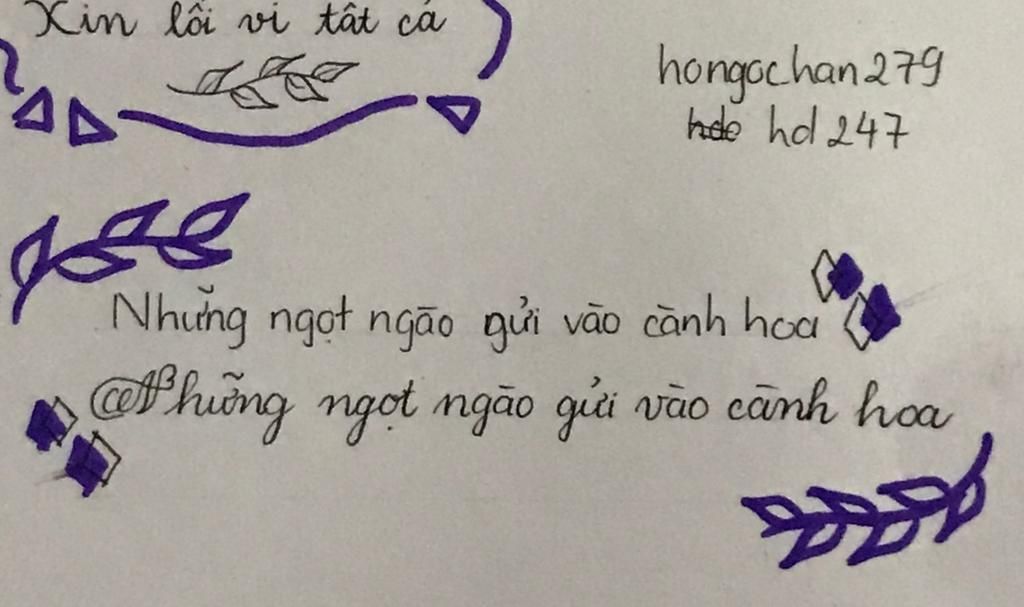 Xin lỗi vì tất cả
hongochan279
hd247
Những ngọt ngào gửi vào cành hoa
Những ngọt ngào gửi vào cành hoa